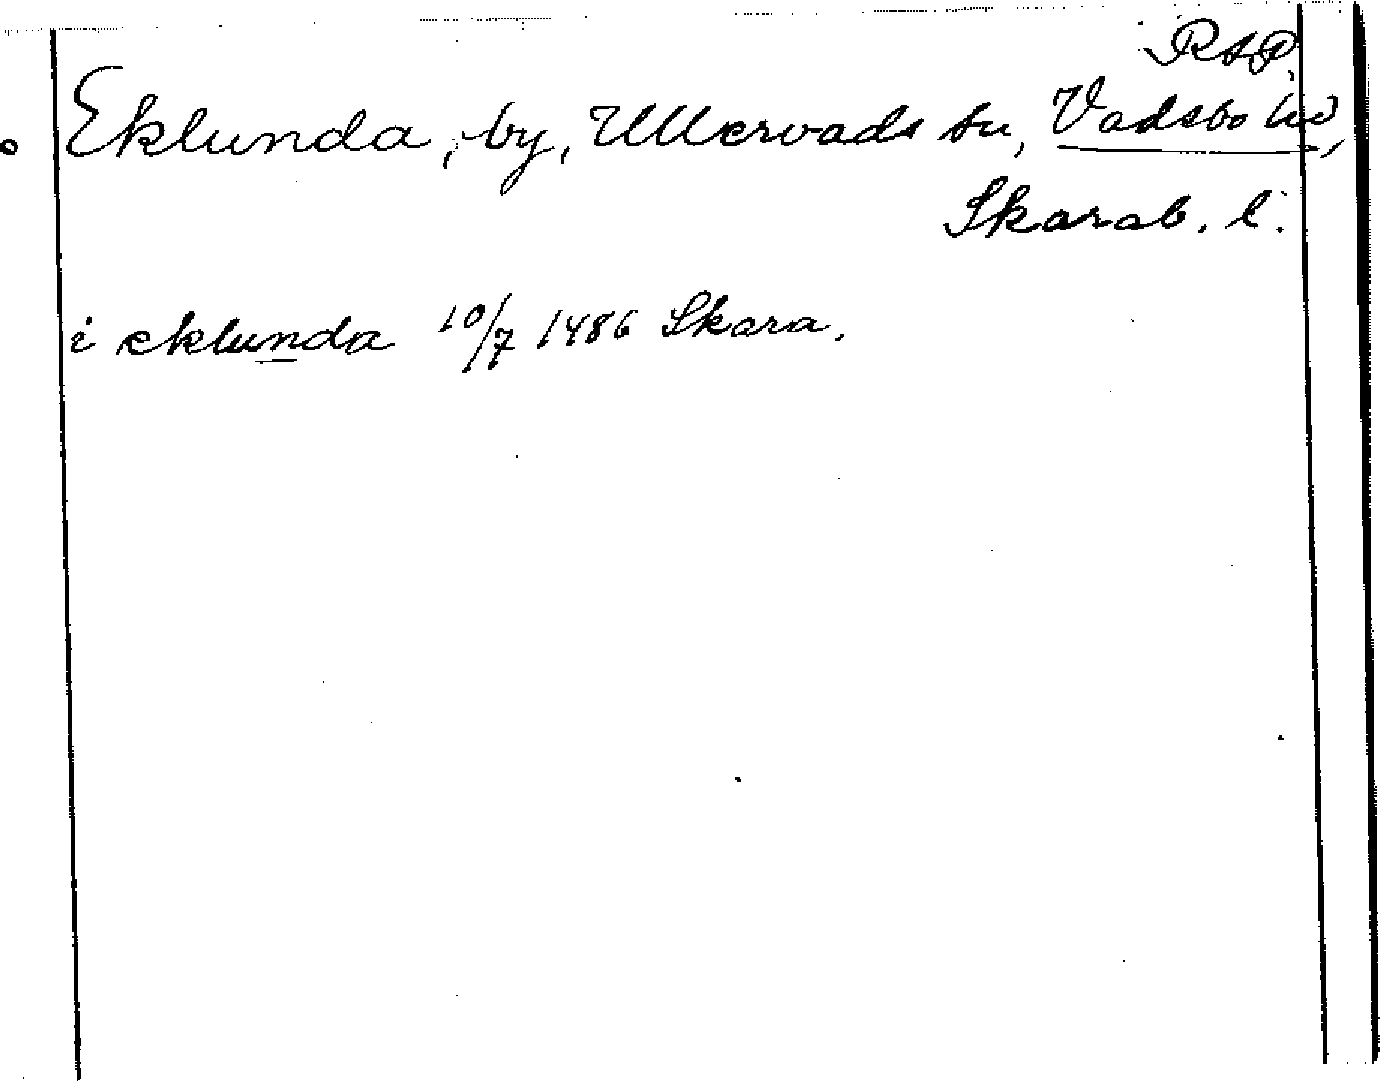 RAP.
Eklunda, by, Ullervads sn, Vadsbo hd,
Skarab. l.
i eklunda 10/7 1486 Skara.